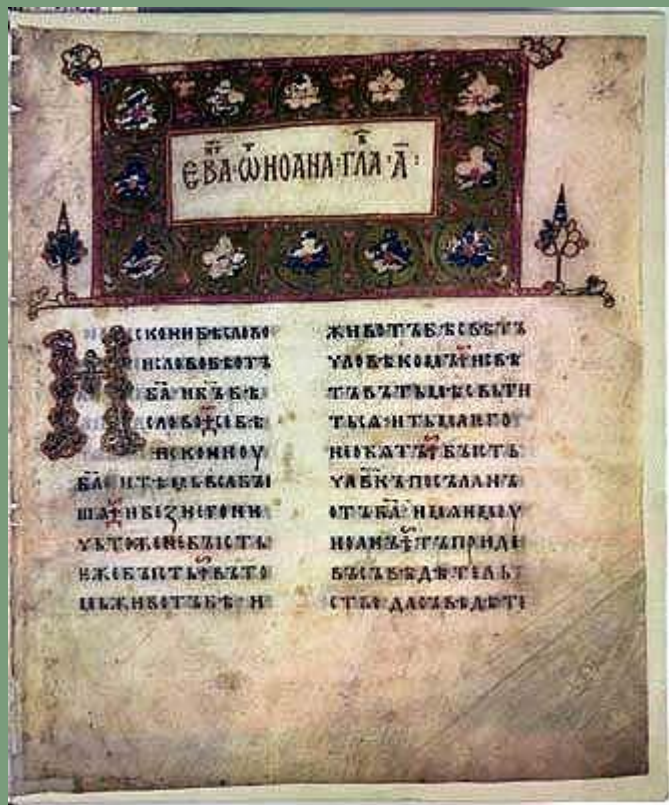 ЕВА҃·ѾИОАНА·ГЛА҃·А҃·
ИСКОНИБѢСЛОВО
ИСЛОВОБѢОТЪ
БА҃·ИБЪ҃БѢ
СЛОВО·СЕБѢ
ИСКОНИОУ
БА҃·ИТѢМЬВЬСѦБЫ
ША·ИБЕЗНЕГОНИ
ЧЬТОЖЕНЕБЫСТЬ
ѤЖЕБЫСТЬ·ВЪТО
МЬЖИВОТЪБѢ·И
ЖИВОТЪБѢСВѢТЪ
ЧЛОВѢКОМЪ·ИСВѢ
ТЪВЪТЬМѢСВЬТИ
ТЬСѦ·ИТЬМАѤГО
НЕОБѦТЪ·БЫСТЬ
ЧЛВ҃КЪПОСЪЛАНЪ
ОТЪБА҃·ИМѦѤМОУ
ИОАНЪ·ТЪПРИДЕ
ВЪСЪВѢДѢТЕЛЬ
СТВО·ДАСЪВѢДѢТЕ